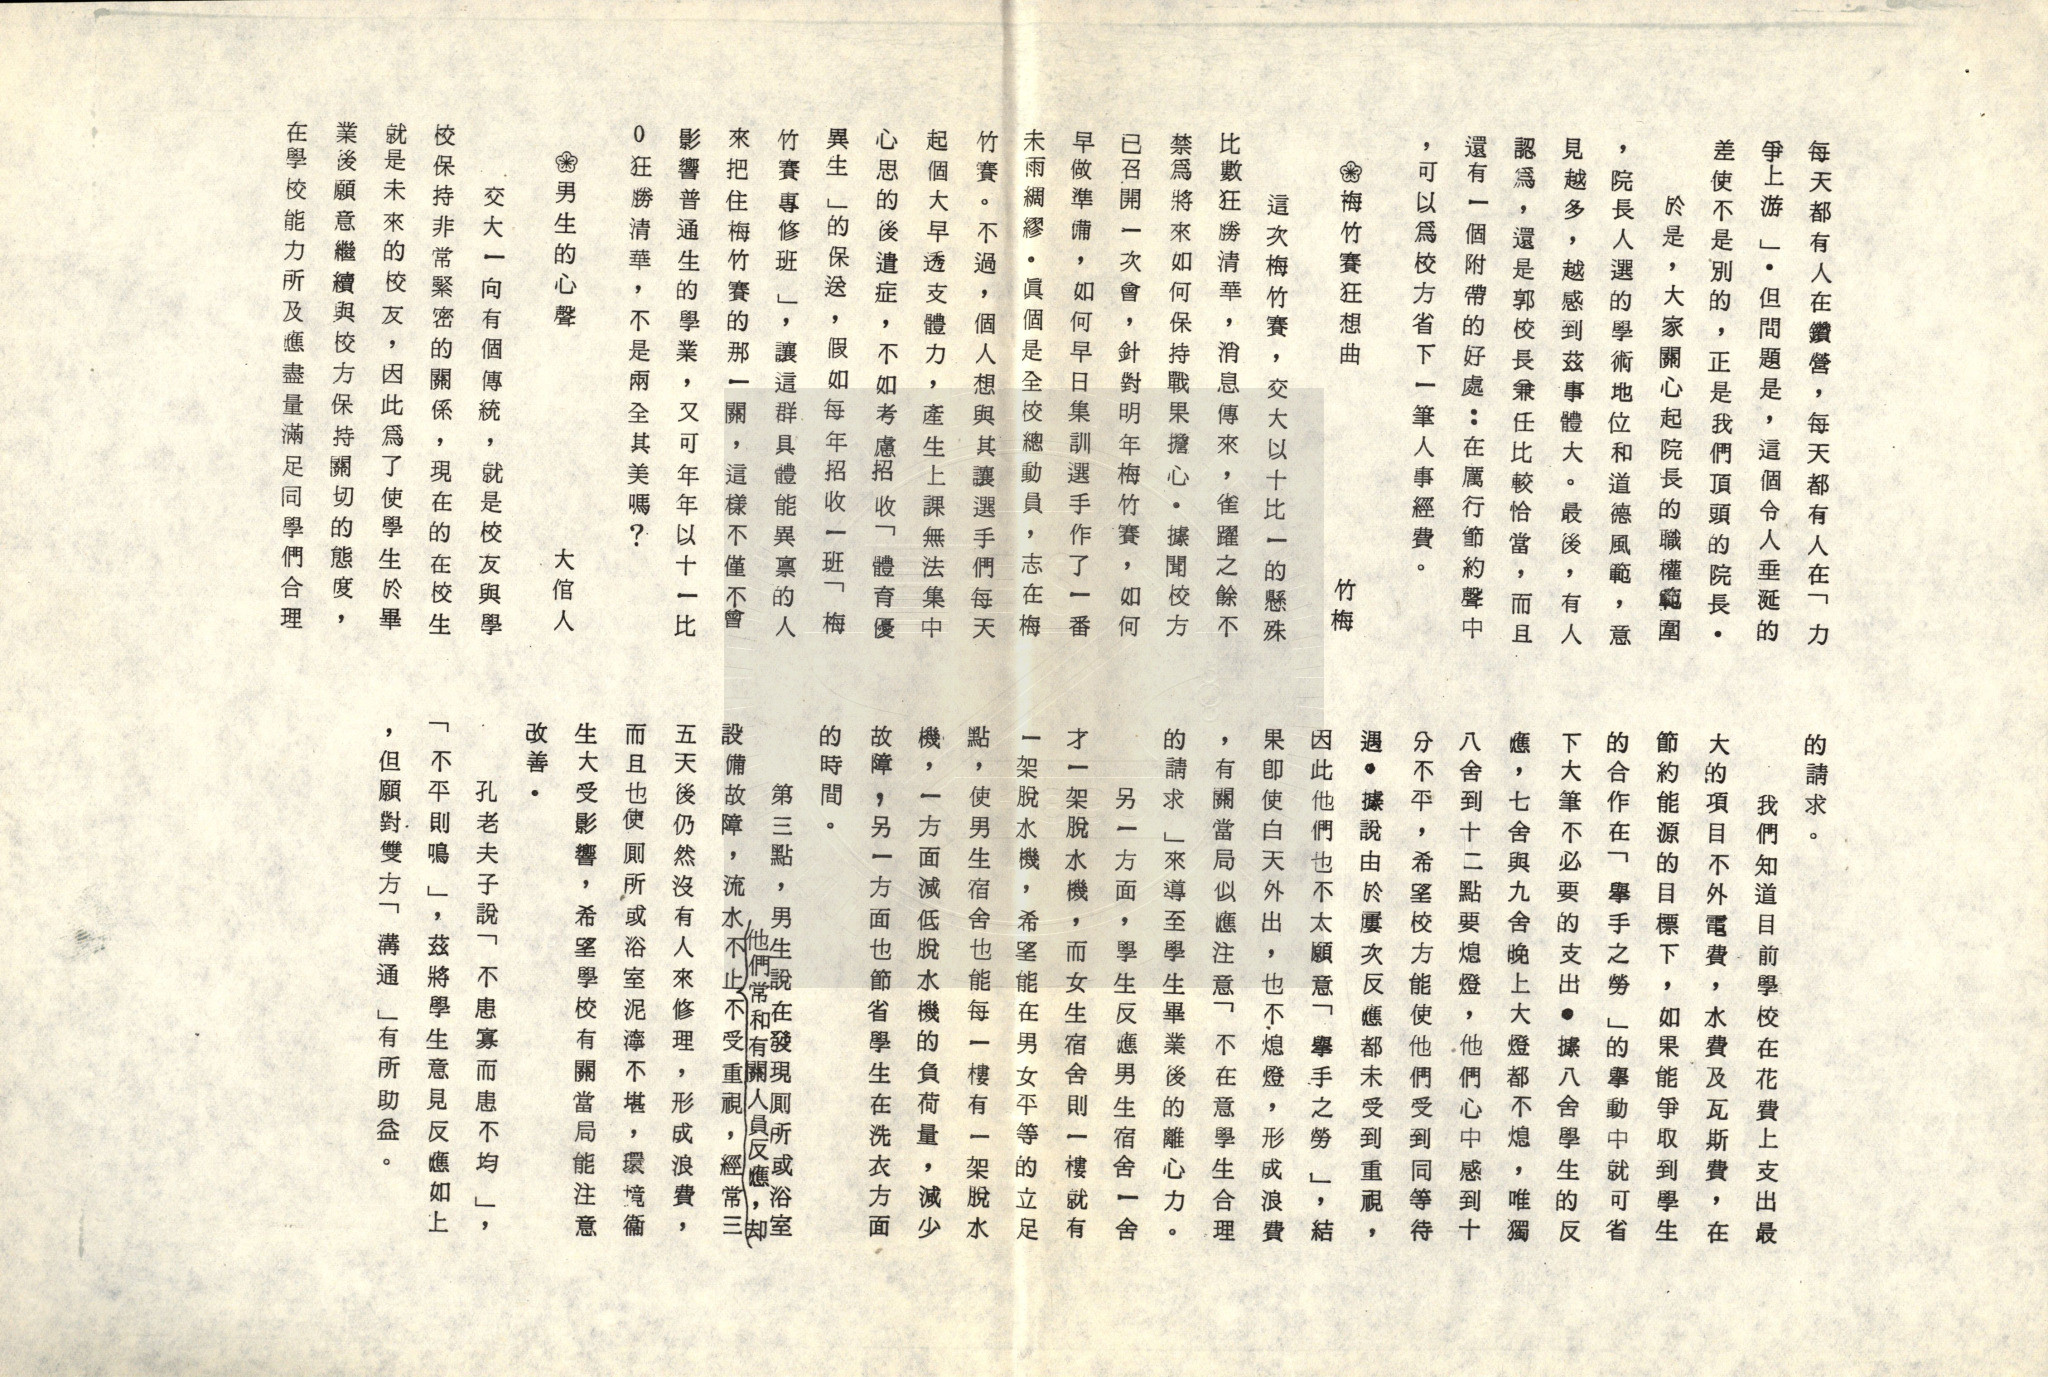 每天都有人在鑽營，每天都有人在「力
爭上游」．但問題是，這個令人垂涎的
差使不是別的，正是我們頂頭的院長．
於是，大家關心起院長的職權範圍
，院長人選的學術地位和道德風範，意
見越多，越感到茲事體大。最後，有人
認爲，還是郭校長兼任比較恰當，而且
還有一個附帶的好處：在厲行節約聲中
，可以爲校方省下一筆人事經費。
❀梅竹賽狂想曲
竹梅
這次梅竹賽，交大以十比一的懸殊
比數狂勝清華，消息傳來，雀躍之餘不
禁爲將來如何保持戰果擔心．據聞校方
已召開一次會，針對明年梅竹賽，如何
早做準備，如何早日集訓選手作了一番
未雨綢繆．眞個是全校總動員，志在梅
竹賽。不過，個人想與其讓選手們每天
起個大早透支體力，產生上課無法集中
心思的後遺症，不如考慮招收「體育優
異生」的保送，假如每年招收一班「梅
竹賽專修班」，讓這群具體能異禀的人
來把住梅竹賽的那一關，這樣不僅不會
影響普通生的學業，又可年年以十一比
0狂勝清華，不是兩全其美嗎？
❀男生的心聲
大倌人
交大一向有個傳統，就是校友與學
校保持非常緊密的關係，現在的在校生
就是未來的校友，因此爲了使學生於畢
業後願意繼續與校方保持關切的態度，
在學校能力所及應盡量滿足同學們合理
的請求。
我們知道目前學校在花費上支出最
大的項目不外電費，水費及瓦斯費，在
節約能源的目標下，如果能爭取到學生
的合作在「舉手之勞」的舉動中就可省
下大筆不必要的支出．據八舍學生的反
應，七舍與九舍晚上大燈都不熄，唯獨
八舍到十二點要熄燈，他們心中感到十
分不平，希望校方能使他們受到同等待
遇．據說由於屢次反應都未受到重視，
因此他們也不太願意「舉手之勞」，結
果卽使白天外出，也不熄燈，形成浪費
，有關當局似應注意「不在意學生合理
的請求」來導至學生畢業後的離心力。
另一方面，學生反應男生宿舍一舍
才一架脫水機，而女生宿舍則一樓就有
一架脫水機，希望能在男女平等的立足
點，使男生宿舍也能每一樓有一架脫水
機，一方面減低脫水機的負荷量，減少
故障，另一方面也節省學生在洗衣方面
的時間。
第三點，男生說在發現厠所或浴室
他們常和有關人員反應，却
設備故障，流水不止不受重視，經常三
五天後仍然沒有人來修理，形成浪費，
而且也使厠所或浴室泥濘不堪，環境衞
生大受影響，希望學校有關當局能注意
改善．
孔老夫子說「不患寡而患不均」，
「不平則鳴」，茲將學生意見反應如上
，但願對雙方「溝通」有所助益。